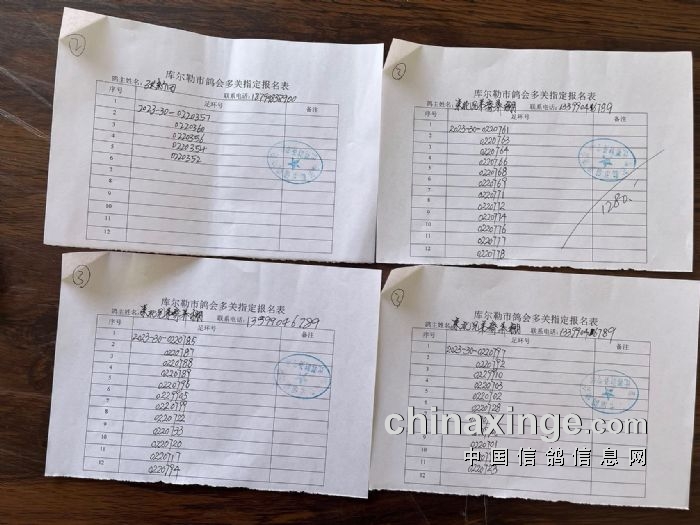 ②
库尔勒市鸽会多关指定报名表
鸽主姓名:
联系电话:
序号
足环号
备注
1
2023-30-0220357
2
0220360
3
0220356
4
0220354
5
0220352
6
7
8
9
10
11
12
②
库尔勒市鸽会多关指定报名表
鸽主姓名:
联系电话: 13399046789
序号
足环号
备注
1
2023-30-0220761
2
0220763
3
0220764
4
0220766
5
0220768
6
0220769
7
0220771
8
0220772
9
0220774
10
0220776
11
0220777
12
0220778
1280.
③
库尔勒市鸽会多关指定报名表
鸽主姓名:
联系电话: 13399046789
序号
足环号
备注
1
2023-30-0220785
2
0220787
3
0220788
4
0220789
5
0220796
6
0229905
7
0220799
8
0220722
9
0220733
10
0220720
11
0220717
12
0220794
②
库尔勒市鸽会多关指定报名表
鸽主姓名:
联系电话: 13399046789
序号
足环号
备注
1
2023-30-0220797
2
0220792
3
0229910
4
0220703
5
0220702
6
0220728
9
10
0220701
11
12
0220723
chinaxinge.com
中国信鸽信息网